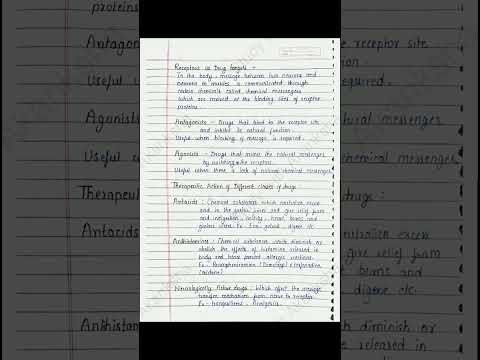 Receptors as Drug targets -
In the body, message between two neurons and
neurons to muscles is communicated through
certain chemicals called chemical messengers
which are received at the binding sites of receptor
proteins.
Antagonists - Drugs that bind to the receptor site
and inhibit its natural function.
Useful when blocking of message is required.
Agonists - Drugs that mimic the natural messenger
by switching the receptor.
Useful when there is lack of natural chemical messenger.
Therapeutic Action of Different classes of drugs :
Antacids : Chemical substances which neutralise excess
acid in the gastric juice and give relief from
acid indigestion, acidity, heart burns and
gastric ulcers. Ex - Eno, gelusil, digene etc.
Antihistamines : Chemical substances which diminish or
abolish the effects of histamine released in
body and hence prevent allergic reactions.
Ex - Brompheniramine (Dimetapp) & terfenadine
(Seldane)
Neurologically Active drugs : Which affect the message
transfer mechanism from nerve to receptor.
Ex - tranquilizers, Analgesics.
proteins
Antagon
Useful
Agonists
Useful
Therapeut
Antacids
Antihistam
receptor site
required.
messenger
chemical messenger
drugs :
excess
give relief from
burns and
digene etc.
diminish or
released in